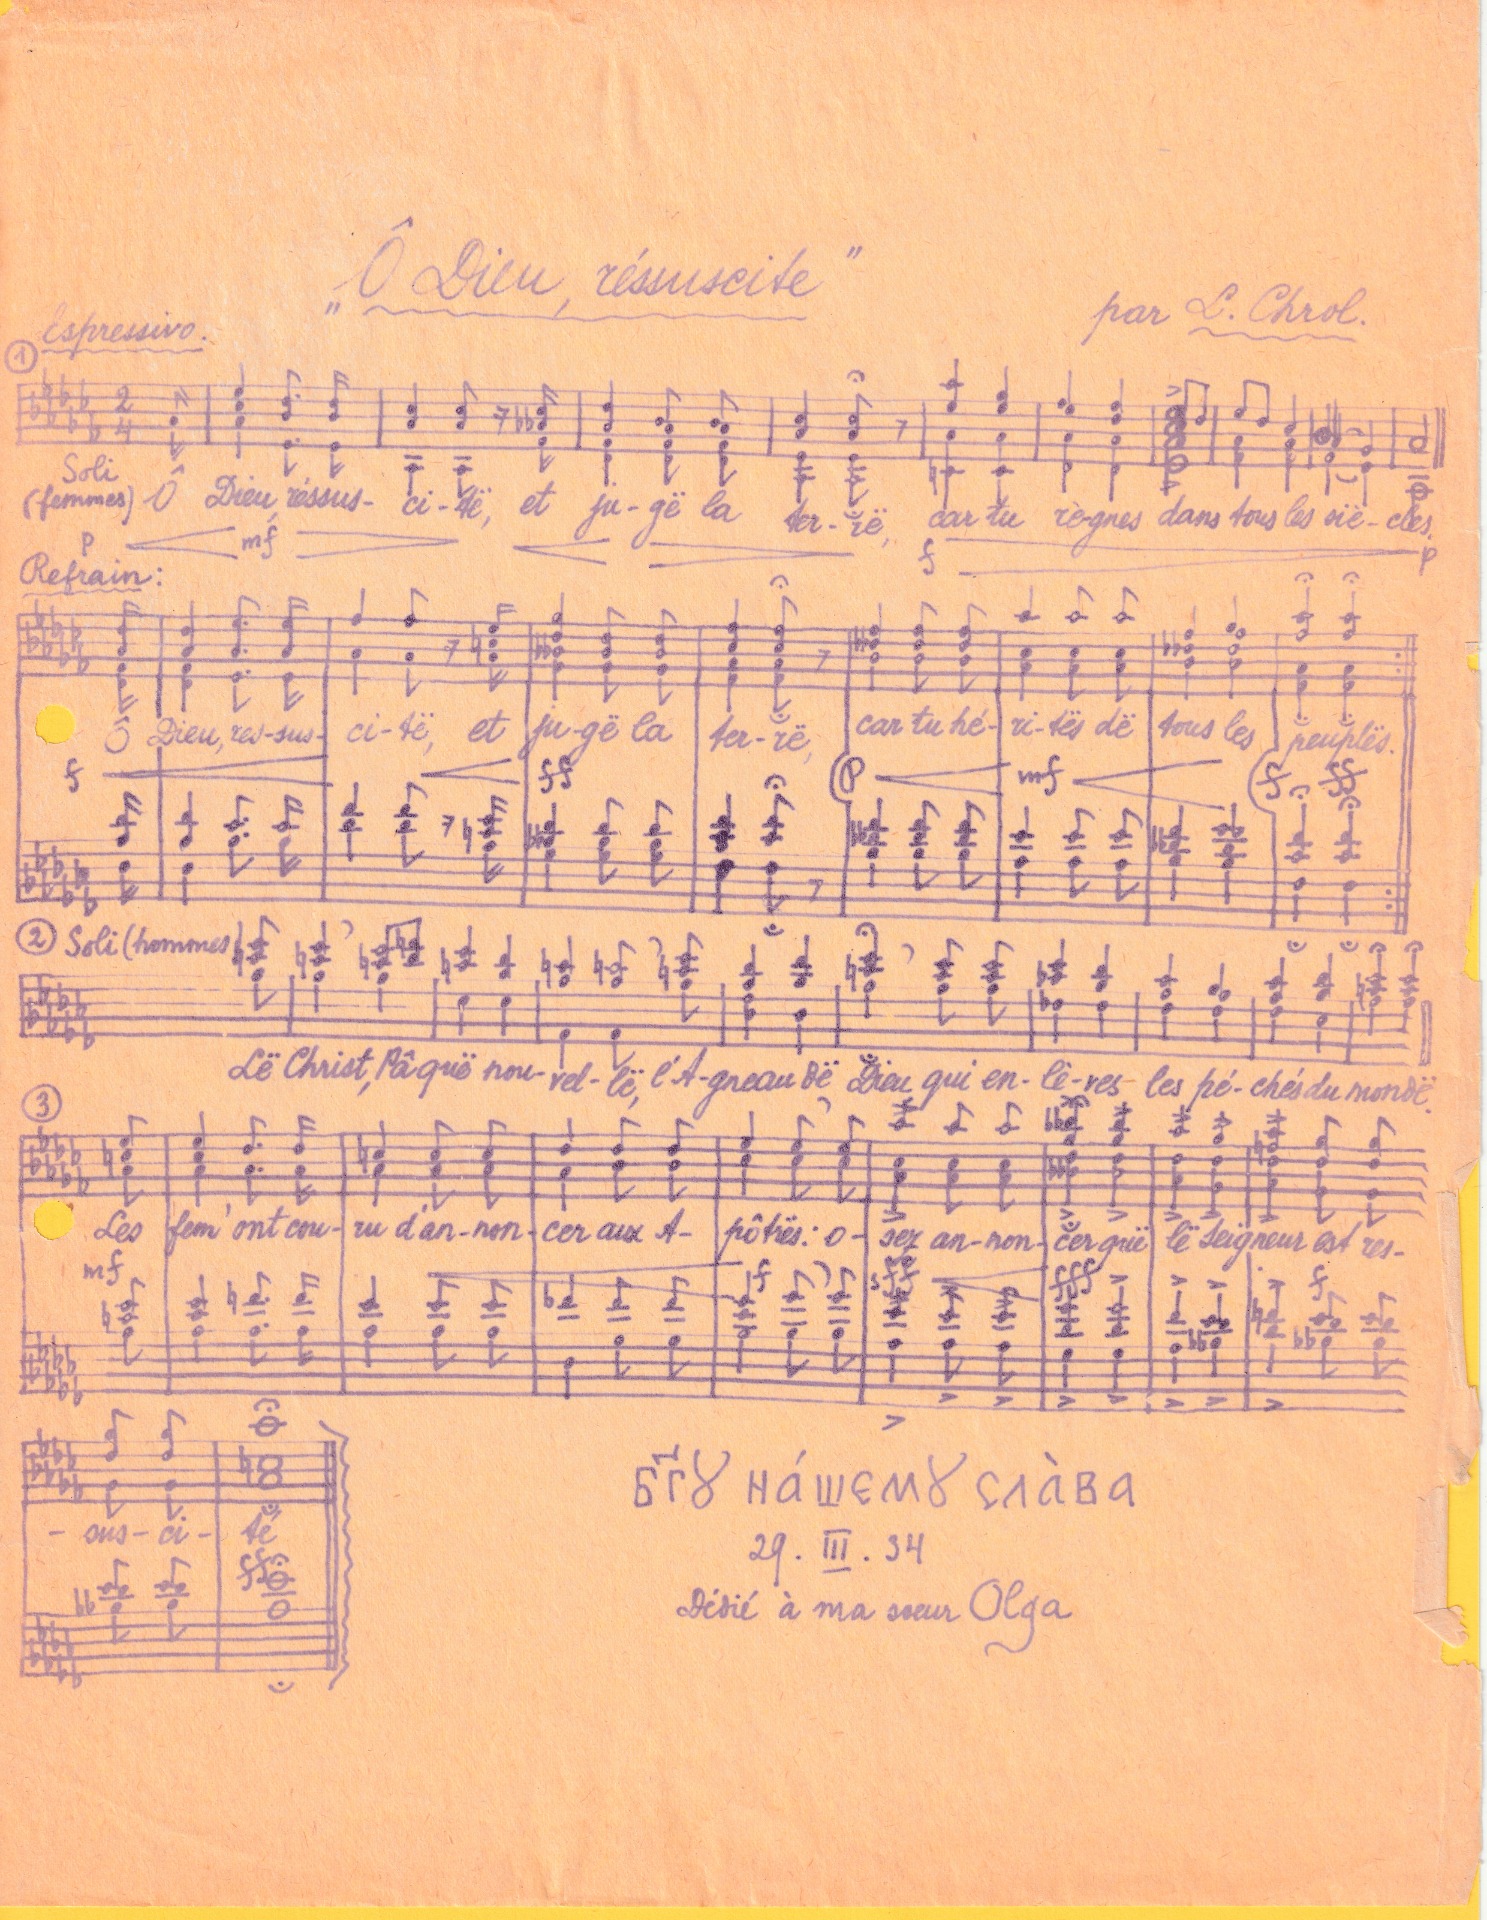 „Ô Dieu, réssuscite"
par L. Chrol.
Espressivo.
① 2 4
Soli
(femmes) Ô Dieu, réssus- ci-të, et ju-gë la ter-rë, car tu rè-gnes dans tous les siè-cles.
p mf f p
Refrain:
Ô Dieu, res-sus- ci-të, et ju-gë la ter-rë, car tu hé- ri-tës dë tous les peuplës.
f ff p mf f ff
② Soli (hommes)
Lë Christ, Pâquë nou-vel-lë, l'A-gneau dë Dieu qui en-lè-ves les pé-chés du mondë.
③
Les fem' ont cou- ru d'an-non- cer aux A- pôtrës: o- sez an-non- cer quë lë Seigneur est res-
mf f sff fff f
- sus- ci- të
ff
Бг҃ꙋ на́шемꙋ сла̀ва
29. III. 34
Dédié à ma soeur Olga